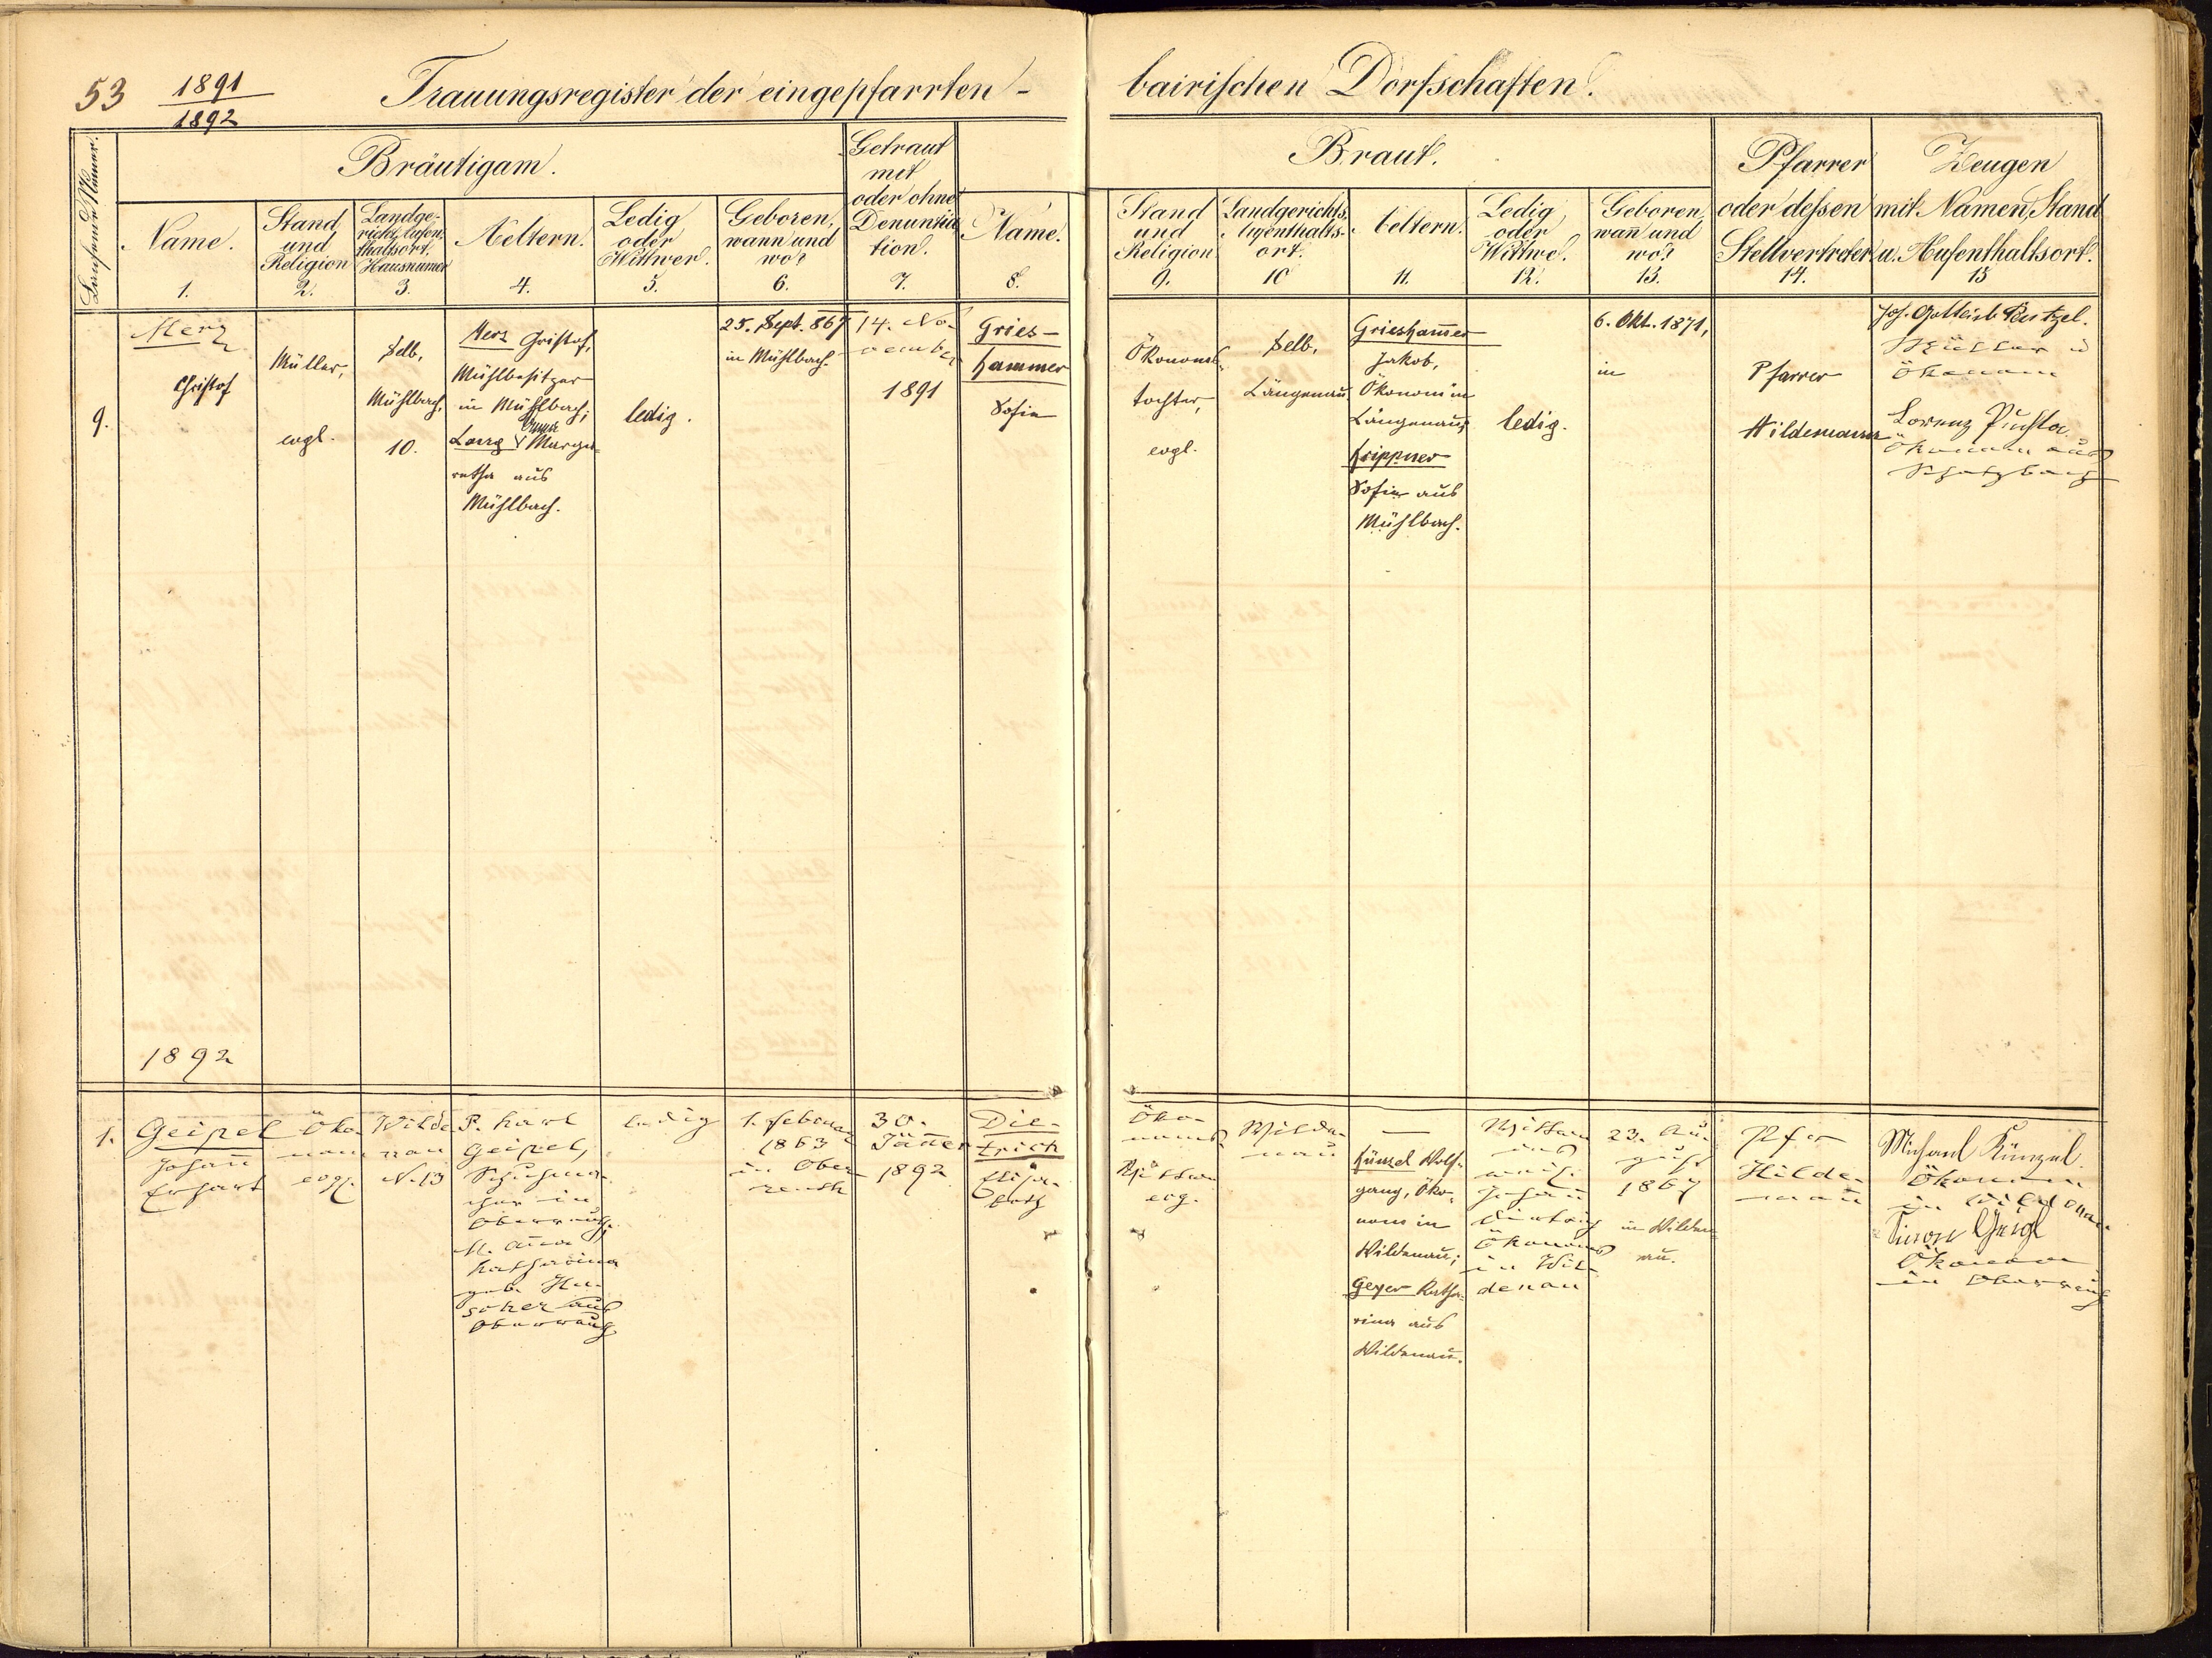 53
1891
1892
Trauungsregister der eingepfarrten-
bairischen Dorfschaften.
Laufende Numer.
Bräutigam.
Name.
1.
Stand
und
Religion
2.
Landge-
richt, Aufen-
thaltsort,
Hausnumer
3.
Aeltern.
4.
Ledig
oder
Wittwer.
5.
Geboren,
wann und
wo?
6.
Getraut
mit
oder ohne
Denuntia
tion.
7.
Name.
8.
Braut.
Stand
und
Religion
9.
Landgerichts,
Aufenthalts-
ort.
10
Aeltern.
11.
Ledig
oder
Wittwe.
12.
Geboren,
wañ und
wo?
13.
Pfarrer
oder dessen
Stellvertreter
14.
Zeugen
mit Namen, Stand
u. Aufenthaltsort.
15
9.
Merz
Christof
Müller,
evgl.
Selb,
Mühlbach,
10.
Merz Christof,
Mühlbesitzer
in Mühlbach;
Marga-
retha aus
Mühlbach.
ledig.
25. Sept. 867
in Mühlbach.
14. No-
vember
1891
Gries-
hammer
Sofie
Ökonoms-
tochter,
evgl.
Selb,
Längenau,
Griesham̄er
Jakob,
Ökonom in
Längenau;
Krippner
Sofie aus
Mühlbach.
ledig.
6. Okt. 1871,
in
Pfarrer
Hildemann
Joh. Gottlieb
Müller u
Ökonom
Lorenz
Ökonom aus
1892
1.
Geipel
Johañ
Erhart
Öko
nom
evgl.
Wilde
nau
N. 13
P. Karl
Geipel,
Schuhma-
cher in
Oberreuth.
M. Añna
Katharina
geb.
aus
Oberreuth
ledig
1. Februar
1863
in Ober-
reuth
30.
Jäner
1892
Die-
trich
Elisa-
beth
Öko-
noms
Wittwe
evg.
Wilde-
nau
Künzel Wolf-
gang, Öko-
nom in
Wildenau;
Geyer Katha-
rina aus
Wildenau.
Wittwe
nach
Johañ
Dietrich
Ökonom
in Wil-
denau
23. Au-
gust
1867
in Wilden-
au.
Pfr
Hilde-
mañ
Michael Künzel.
Ökonom
in Wildenau
Simon Geigl
Ökonom
in Oberreuth